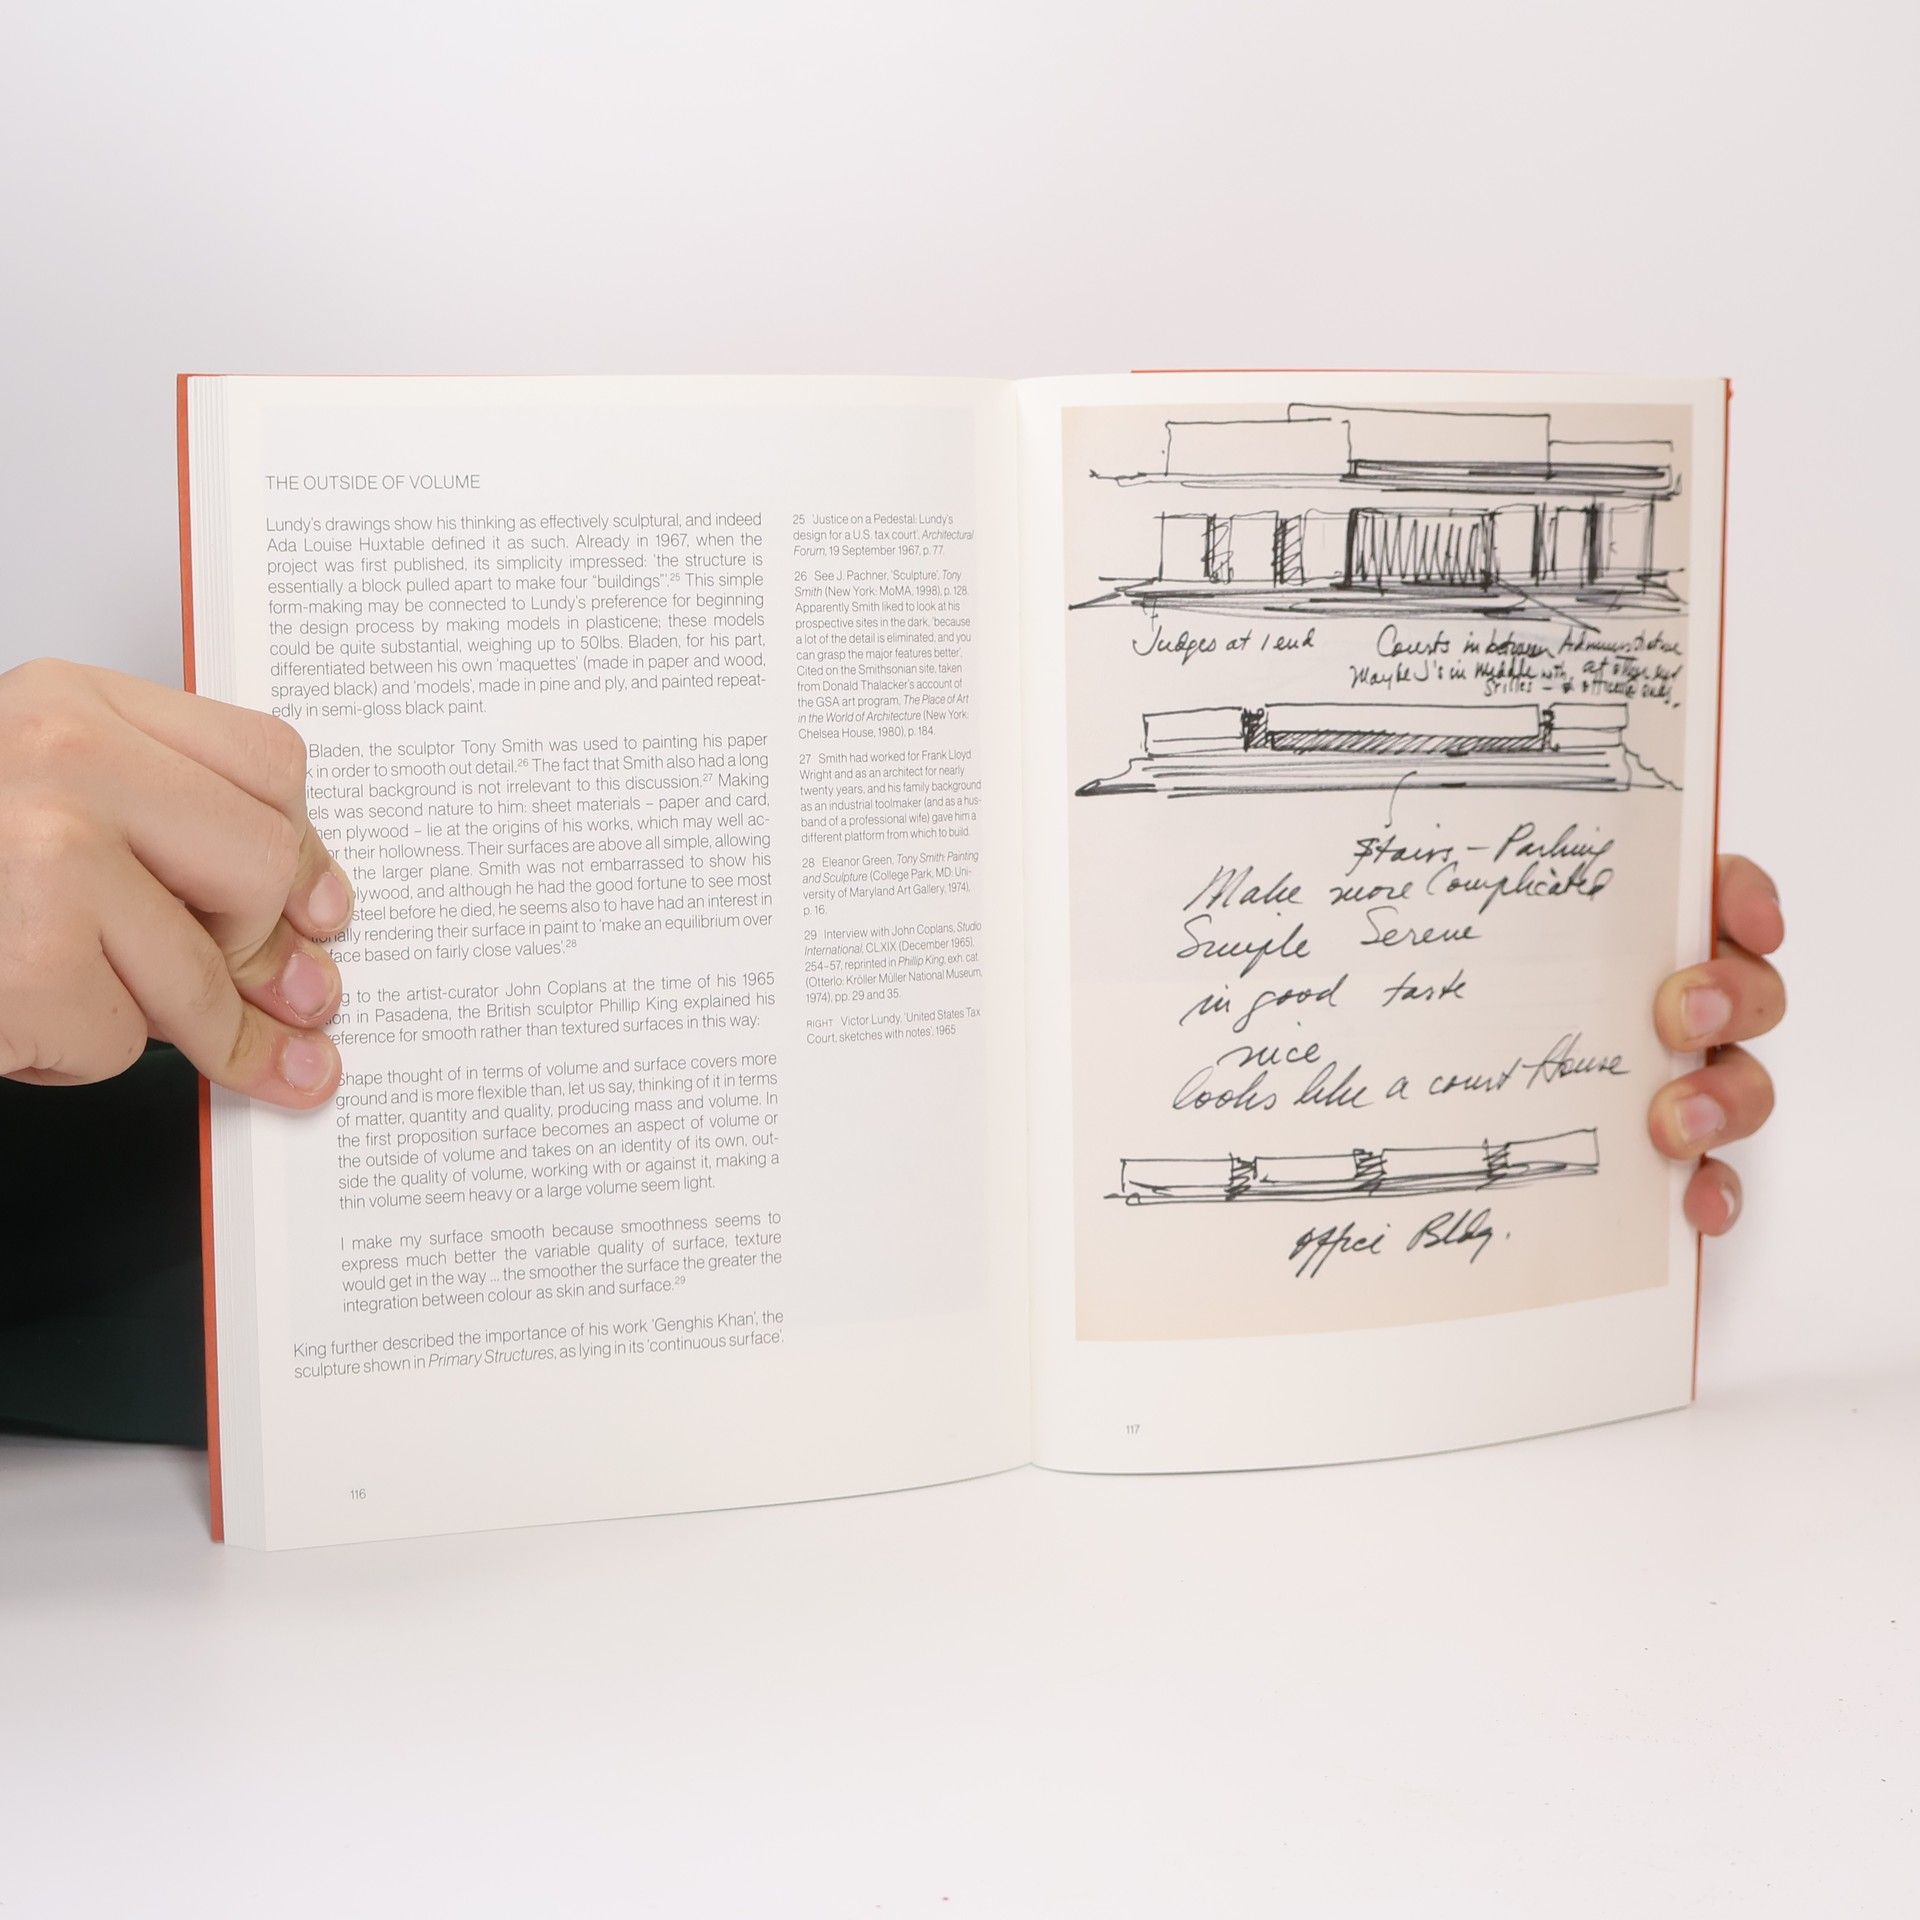 THE OUTSIDE OF VOLUME
Lundy's drawings show his thinking as effectively sculptural, and indeed
Ada Louise Huxtable defined it as such. Already in 1967, when the
project was first published, its simplicity impressed: 'the structure is
essentially a block pulled apart to make four "buildings"'.25 This simple
form-making may be connected to Lundy's preference for beginning
the design process by making models in plasticene; these models
could be quite substantial, weighing up to 50lbs. Bladen, for his part,
differentiated between his own 'maquettes' (made in paper and wood,
sprayed black) and 'models', made in pine and ply, and painted repeat-
edly in semi-gloss black paint.
Bladen, the sculptor Tony Smith was used to painting his paper
k in order to smooth out detail.26 The fact that Smith also had a long
itectural background is not irrelevant to this discussion.27 Making
els was second nature to him: sheet materials – paper and card,
hen plywood – lie at the origins of his works, which may well ac-
or their hollowness. Their surfaces are above all simple, allowing
the larger plane. Smith was not embarrassed to show his
lywood, and although he had the good fortune to see most
steel before he died, he seems also to have had an interest in
onally rendering their surface in paint to 'make an equilibrium over
face based on fairly close values'.28
g to the artist-curator John Coplans at the time of his 1965
on in Pasadena, the British sculptor Phillip King explained his
eference for smooth rather than textured surfaces in this way:
Shape thought of in terms of volume and surface covers more
ground and is more flexible than, let us say, thinking of it in terms
of matter, quantity and quality, producing mass and volume. In
the first proposition surface becomes an aspect of volume or
the outside of volume and takes on an identity of its own, out-
side the quality of volume, working with or against it, making a
thin volume seem heavy or a large volume seem light.
I make my surface smooth because smoothness seems to
express much better the variable quality of surface, texture
would get in the way ... the smoother the surface the greater the
integration between colour as skin and surface.29
King further described the importance of his work 'Genghis Khan', the
sculpture shown in Primary Structures, as lying in its 'continuous surface'.
116
25 'Justice on a Pedestal: Lundy's
design for a U.S. tax court', Architectural
Forum, 19 September 1967, p. 77.
26 See J. Pachner, 'Sculpture', Tony
Smith (New York: MoMA, 1998), p. 128.
Apparently Smith liked to look at his
prospective sites in the dark, 'because
a lot of the detail is eliminated, and you
can grasp the major features better'.
Cited on the Smithsonian site, taken
from Donald Thalacker's account of
the GSA art program, The Place of Art
in the World of Architecture (New York:
Chelsea House, 1980), p. 184.
27 Smith had worked for Frank Lloyd
Wright and as an architect for nearly
twenty years, and his family background
as an industrial toolmaker (and as a hus-
band of a professional wife) gave him a
different platform from which to build.
28 Eleanor Green, Tony Smith: Painting
and Sculpture (College Park, MD: Uni-
versity of Maryland Art Gallery, 1974),
p. 16.
29 Interview with John Coplans, Studio
International, CLXIX (December 1965),
254–57, reprinted in Phillip King, exh. cat.
(Otterlo: Kröller Müller National Museum,
1974), pp. 29 and 35.
RIGHT Victor Lundy, 'United States Tax
Court, sketches with notes', 1965
Judges at 1 end
Courts in between Administrative
Maybe J's in middle with at other end
Stairs – Parking
Make more Complicated
Simple Serene
in good taste
nice
looks like a court House
office Bldg.
117